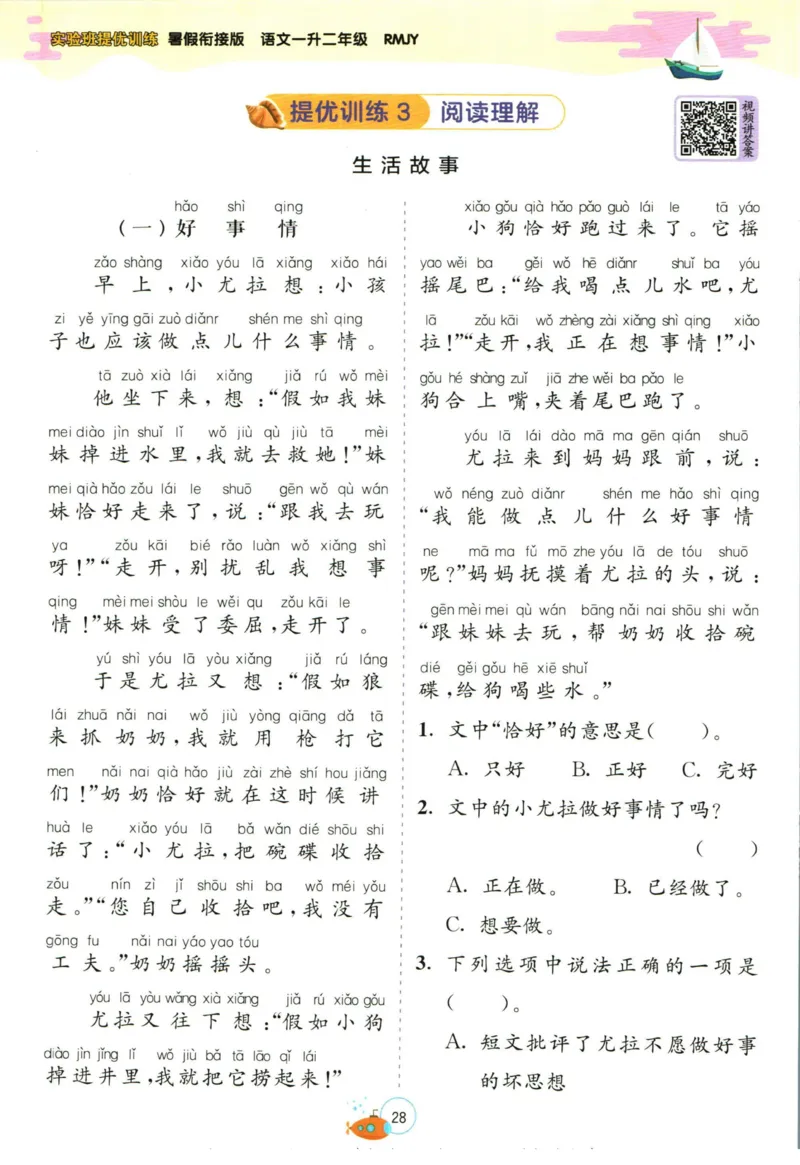 实验班提优训练 暑假衔接版 语文一升二年级 RMJY
提优训练3 阅读理解
视频讲答案
生活故事
hǎo shì qing
（一）好事情
zǎo shàng xiǎo yóu lā xiǎng xiǎo hái
早上，小尤拉想：小孩
zi yě yīng gāi zuò diǎnr shén me shì qing
子也应该做点儿什么事情。
tā zuò xià lái xiǎng jiǎ rú wǒ mèi
他坐下来，想：“假如我妹
mei diào jìn shuǐ lǐ wǒ jiù qù jiù tā mèi
妹掉进水里，我就去救她！”妹
mei qià hǎo zǒu lái le shuō gēn wǒ qù wán
妹恰好走来了，说：“跟我去玩
ya zǒu kāi bié rǎo luàn wǒ xiǎng shì
呀！”“走开，别扰乱我想事
qing mèi mei shòu le wěi qu zǒu kāi le
情！”妹妹受了委屈，走开了。
yú shì yóu lā yòu xiǎng jiǎ rú láng
于是尤拉又想：“假如狼
lái zhuā nǎi nai wǒ jiù yòng qiāng dǎ tā
来抓奶奶，我就用枪打它
men nǎi nai qià hǎo jiù zài zhè shí hou jiǎng
们！”奶奶恰好就在这时候讲
huà le xiǎo yóu lā bǎ wǎn dié shōu shi
话了：“小尤拉，把碗碟收拾
zǒu nín zì jǐ shōu shi ba wǒ méi yǒu
走。”“您自己收拾吧，我没有
gōng fu nǎi nai yáo yao tóu
工夫。”奶奶摇摇头。
yóu lā yòu wǎng xià xiǎng jiǎ rú xiǎo gǒu
尤拉又往下想：“假如小狗
diào jìn jǐng lǐ wǒ jiù bǎ tā lāo qǐ lái
掉进井里，我就把它捞起来！”
xiǎo gǒu qià hǎo pǎo guò lái le tā yáo
小狗恰好跑过来了。它摇
yao wěi ba gěi wǒ hē diǎnr shuǐ ba yóu
摇尾巴：“给我喝点儿水吧，尤
lā zǒu kāi wǒ zhèng zài xiǎng shì qing xiǎo
拉！”“走开，我正在想事情！”小
gǒu hé shàng zuǐ jiā zhe wěi ba pǎo le
狗合上嘴，夹着尾巴跑了。
yóu lā lái dào mā ma gēn qián shuō
尤拉来到妈妈跟前，说：
wǒ néng zuò diǎnr shén me hǎo shì qing
“我能做点儿什么好事情
ne mā ma fǔ mō zhe yóu lā de tóu shuō
呢？”妈妈抚摸着尤拉的头，说：
gēn mèi mei qù wán bāng nǎi nai shōu shi wǎn
“跟妹妹去玩，帮奶奶收拾碗
dié gěi gǒu hē xiē shuǐ
碟，给狗喝些水。”
1. 文中“恰好”的意思是（　　）。
A. 只好 B. 正好 C. 完好
2. 文中的小尤拉做好事情了吗？
（　　）
A. 正在做。 B. 已经做了。
C. 想要做。
3. 下列选项中说法正确的一项是
（　　）。
A. 短文批评了尤拉不愿做好事
的坏思想
28